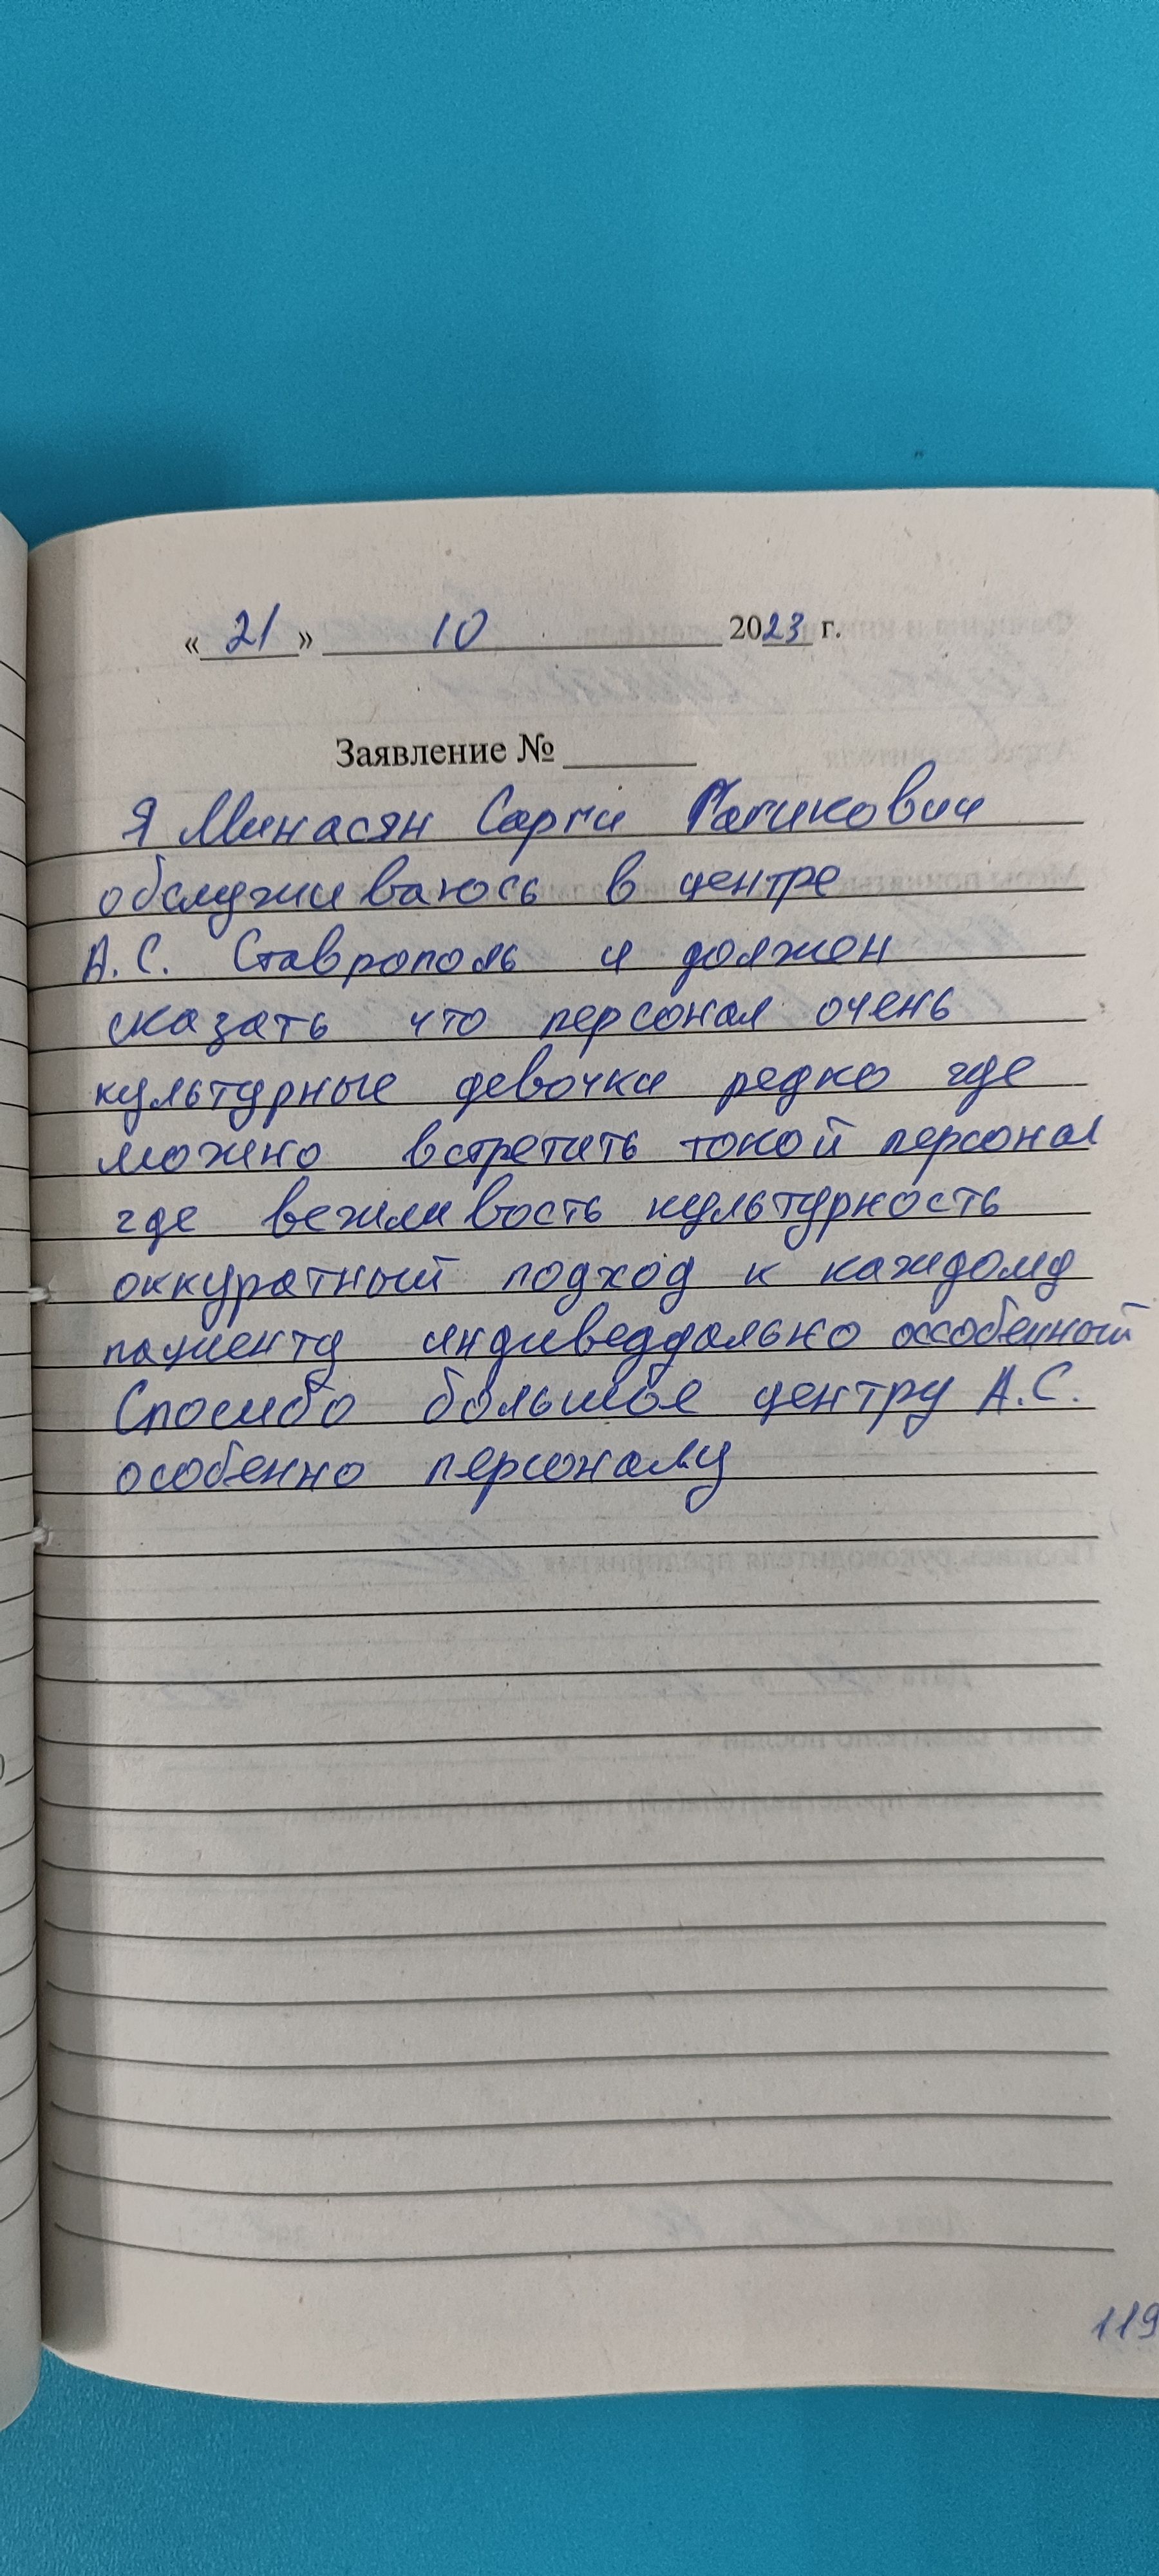 « 21 » 10 2023 г.
Заявление №
Я Минасян Сарги Гагикович
обслуживаюсь в центре
А.С. Ставрополь я должен
сказать что персонал очень
культурные девочки редко где
можно встретить токой персонал
где вежливость культурность
оккуратный подход к каждому
пациенту индиведдально оссобенный
Спосибо большое центру А.С.
особенно персоналу
119